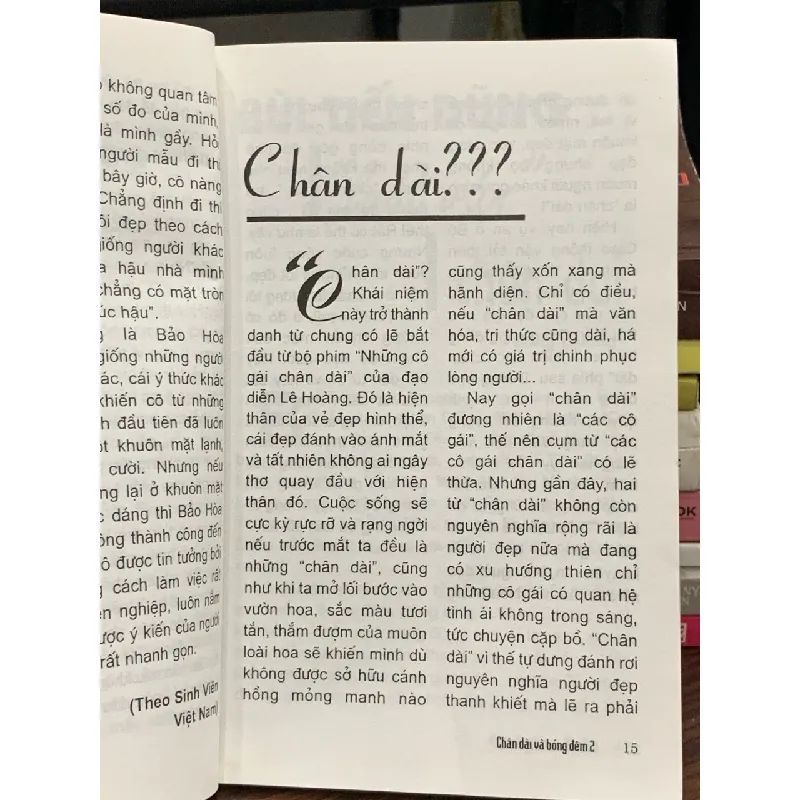 không quan tâm
số đo của mình,
là mình gầy. Hỏi
người mẫu đi thi
bây giờ, cô nàng
Chẳng định đi thi
ôi đẹp theo cách
giống người khác
hậu nhà mình
chẳng có mặt tròn
úc hậu".
là Bảo Hòa
giống những người
ác, cái ý thức khác
khiến cô từ những
h đầu tiên đã luôn
ột khuôn mặt lạnh,
cười. Nhưng nếu
ng lại ở khuôn mặt
dáng thì Bảo Hòa
ông thành công đến
ô được tin tưởng bởi
cách làm việc rất
ên nghiệp, luôn nắm
ược ý kiến của người
rất nhanh gọn.
(Theo Sinh Viên
Việt Nam)
Chân dài???
"Chân dài"?
Khái niệm
này trở thành
danh từ chung có lẽ bắt
đầu từ bộ phim "Những cô
gái chân dài" của đạo
diễn Lê Hoàng. Đó là hiện
thân của vẻ đẹp hình thể,
cái đẹp đánh vào ánh mắt
và tất nhiên không ai ngây
thơ quay đầu với hiện
thân đó. Cuộc sống sẽ
cực kỳ rực rỡ và rạng ngời
nếu trước mắt ta đều là
những "chân dài", cũng
như khi ta mở lối bước vào
vườn hoa, sắc màu tươi
tắn, thắm đượm của muôn
loài hoa sẽ khiến mình dù
không được sở hữu cánh
hồng mỏng manh nào
cũng thấy xốn xang mà
hãnh diện. Chỉ có điều,
nếu "chân dài" mà văn
hóa, tri thức cũng dài, há
mới có giá trị chinh phục
lòng người...
Nay gọi "chân dài"
đương nhiên là "các cô
gái", thế nên cụm từ "các
cô gái chân dài" có lẽ
thừa. Nhưng gần đây, hai
từ "chân dài" không còn
nguyên nghĩa rộng rãi là
người đẹp nữa mà đang
có xu hướng thiên chỉ
những cô gái có quan hệ
tình ái không trong sáng,
tức chuyện cặp bồ. "Chân
dài" vì thế tự dưng đánh rơi
nguyên nghĩa người đẹp
thanh khiết mà lẽ ra phải
Chân dài và bóng đêm 2 15